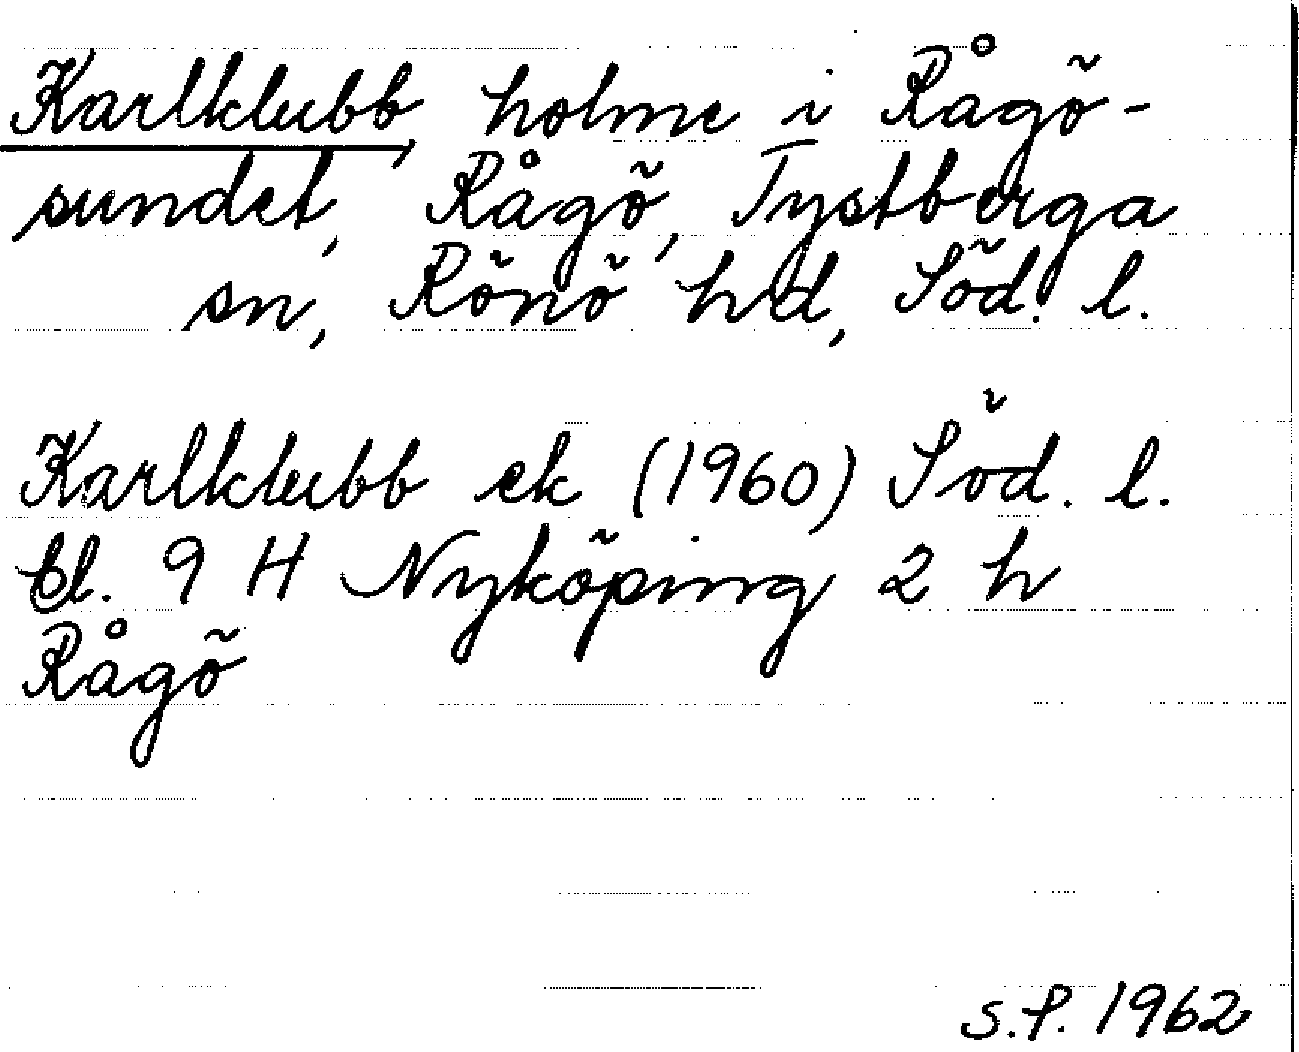 Karlklubb, holme i Rågö-
sundet, Rågö, Tystberga
sn, Rönö hd, Söd. l.
Karlklubb ek (1960) Söd. l.
bl. 9 H Nyköping 2 h
Rågö
S.P. 1962